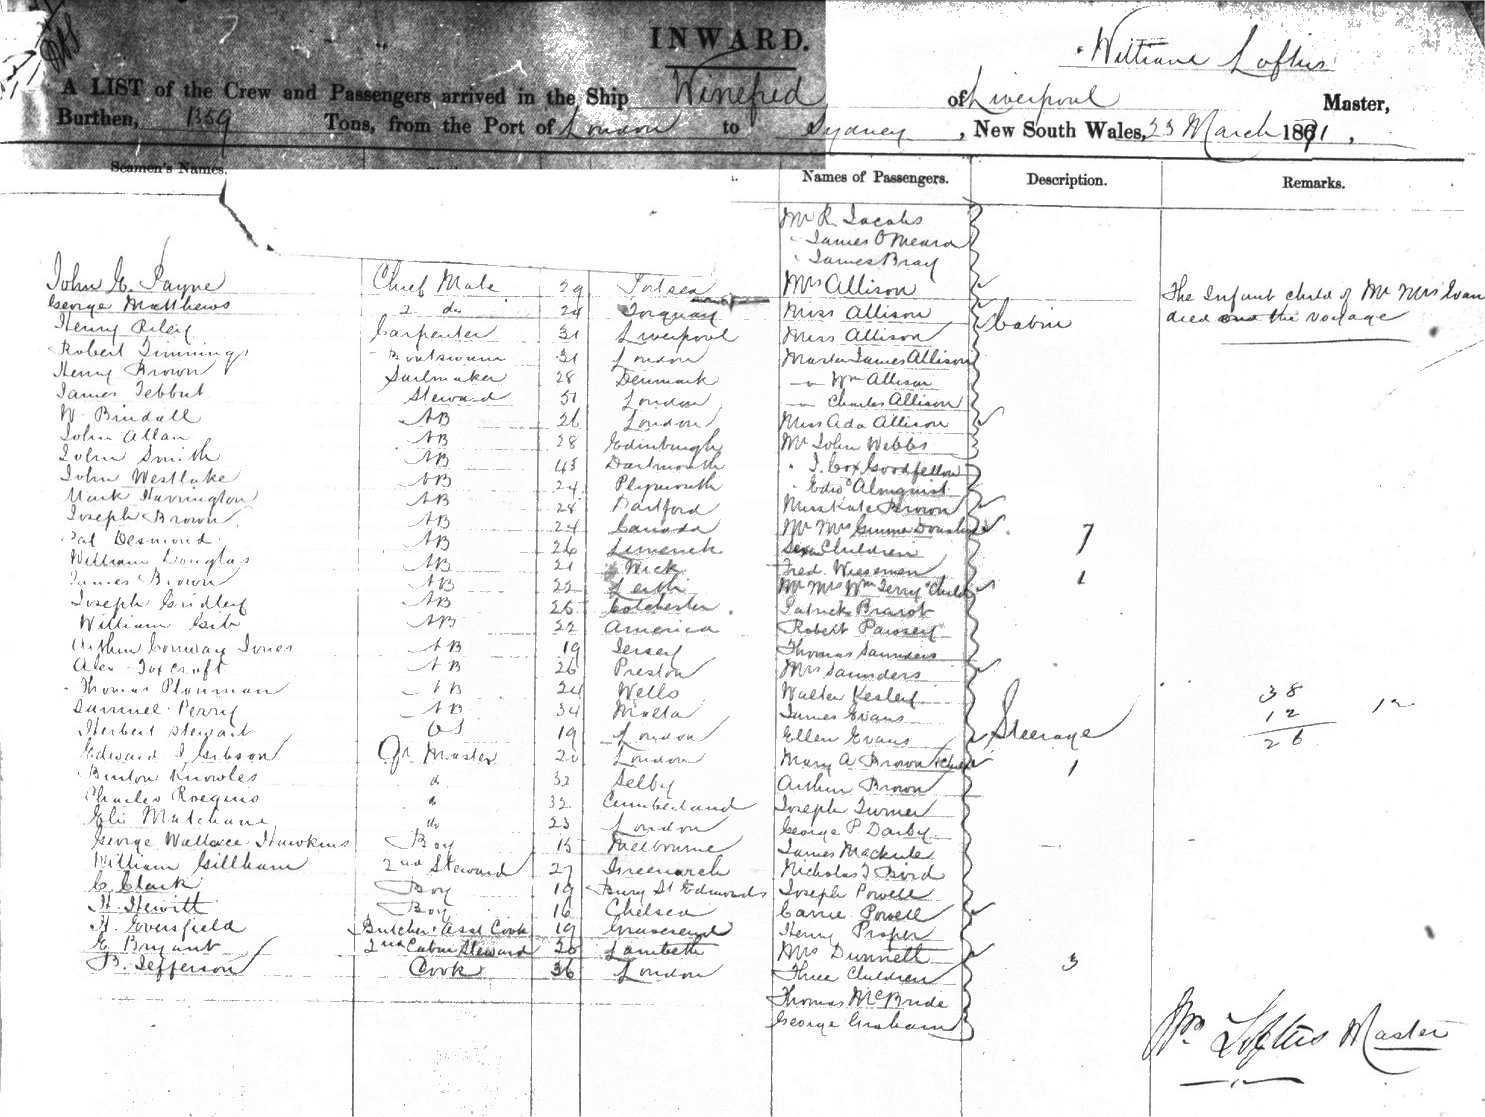 INWARD.
William Loftus
A LIST of the Crew and Passengers arrived in the Ship Winefred of Liverpool Master,
Burthen, 1359 Tons, from the Port of London to Sydney, New South Wales, 23 March 1871,
Seamen's Names. Names of Passengers. Description. Remarks.
Mr R Jacobs
" James O'Meara
" James Bray
John E. Payne Chief Mate 29 Portsea Mrs Allison
George Matthews 2 do 24 Torquay Miss Allison
Henry Riley Carpenter 31 Liverpool Miss Allison Cabin
The Infant child of Mr Mrs Evan
died on the voyage
Robert Timmings Boatswain 31 London Master James Allison
Henry Brown Sailmaker 28 Denmark " Wm Allison
James Tebbut Steward 31 London " Charles Allison
W. Bindall AB 26 London Miss Ada Allison
John Allan AB 28 Edinburgh Mr John Webbs
John Smith AB 43 Dartmouth " J. Cox Goodfellow
John Westlake AB 24 Plymouth " Edwd Almquist
Mark Harrington AB 28 Dartford Miss Kate Brown
Joseph Brown AB 24 Canada Mr Mrs
Pat Desmond AB 26 Limerick Seven Children 7
William Douglas AB 21 Wick Fred. Wieseman
James Brown AB 22 Leith Mr Mrs Wm Terry & Child 1
Joseph Gridley AB 26 Colchester Patrick
William AB 22 America Robert
Arthur Conway Jones AB 19 Jersey Thomas Saunders
Alex Foxcroft AB 26 Preston Mrs Saunders
Thomas Plowman AB 24 Wells Walter Kesley
Samuel Perry AB 34 Malta James Evans
Herbert Stewart OS 19 London Ellen Evans Steerage
38
12 12
26
Edward J Gibson Qr Master 20 London Mary A Brown & Child 1
Knowles do 32 Selby Arthur Brown
Charles do 32 Cumberland Joseph Turner
Eli do 23 London George P Darby
George Wallace Hawkins Boy 15 Melbourne James
William Gillham 2nd Steward 27 Greenwich Nicholas J Bird
C. Clark Boy 19 Bury St Edmonds Joseph Powell
H. Hewitt Boy 16 Chelsea Carrie Powell
H. Eversfield Butcher & Asst Cook 19 Gravesend Henry Proper
E Bryant 2nd Cabin Steward 20 Lambeth Mrs Dunnett
B. Jefferson Cook 36 London Three Children 3
Thomas McBride
George Graham
Wm Loftus Master